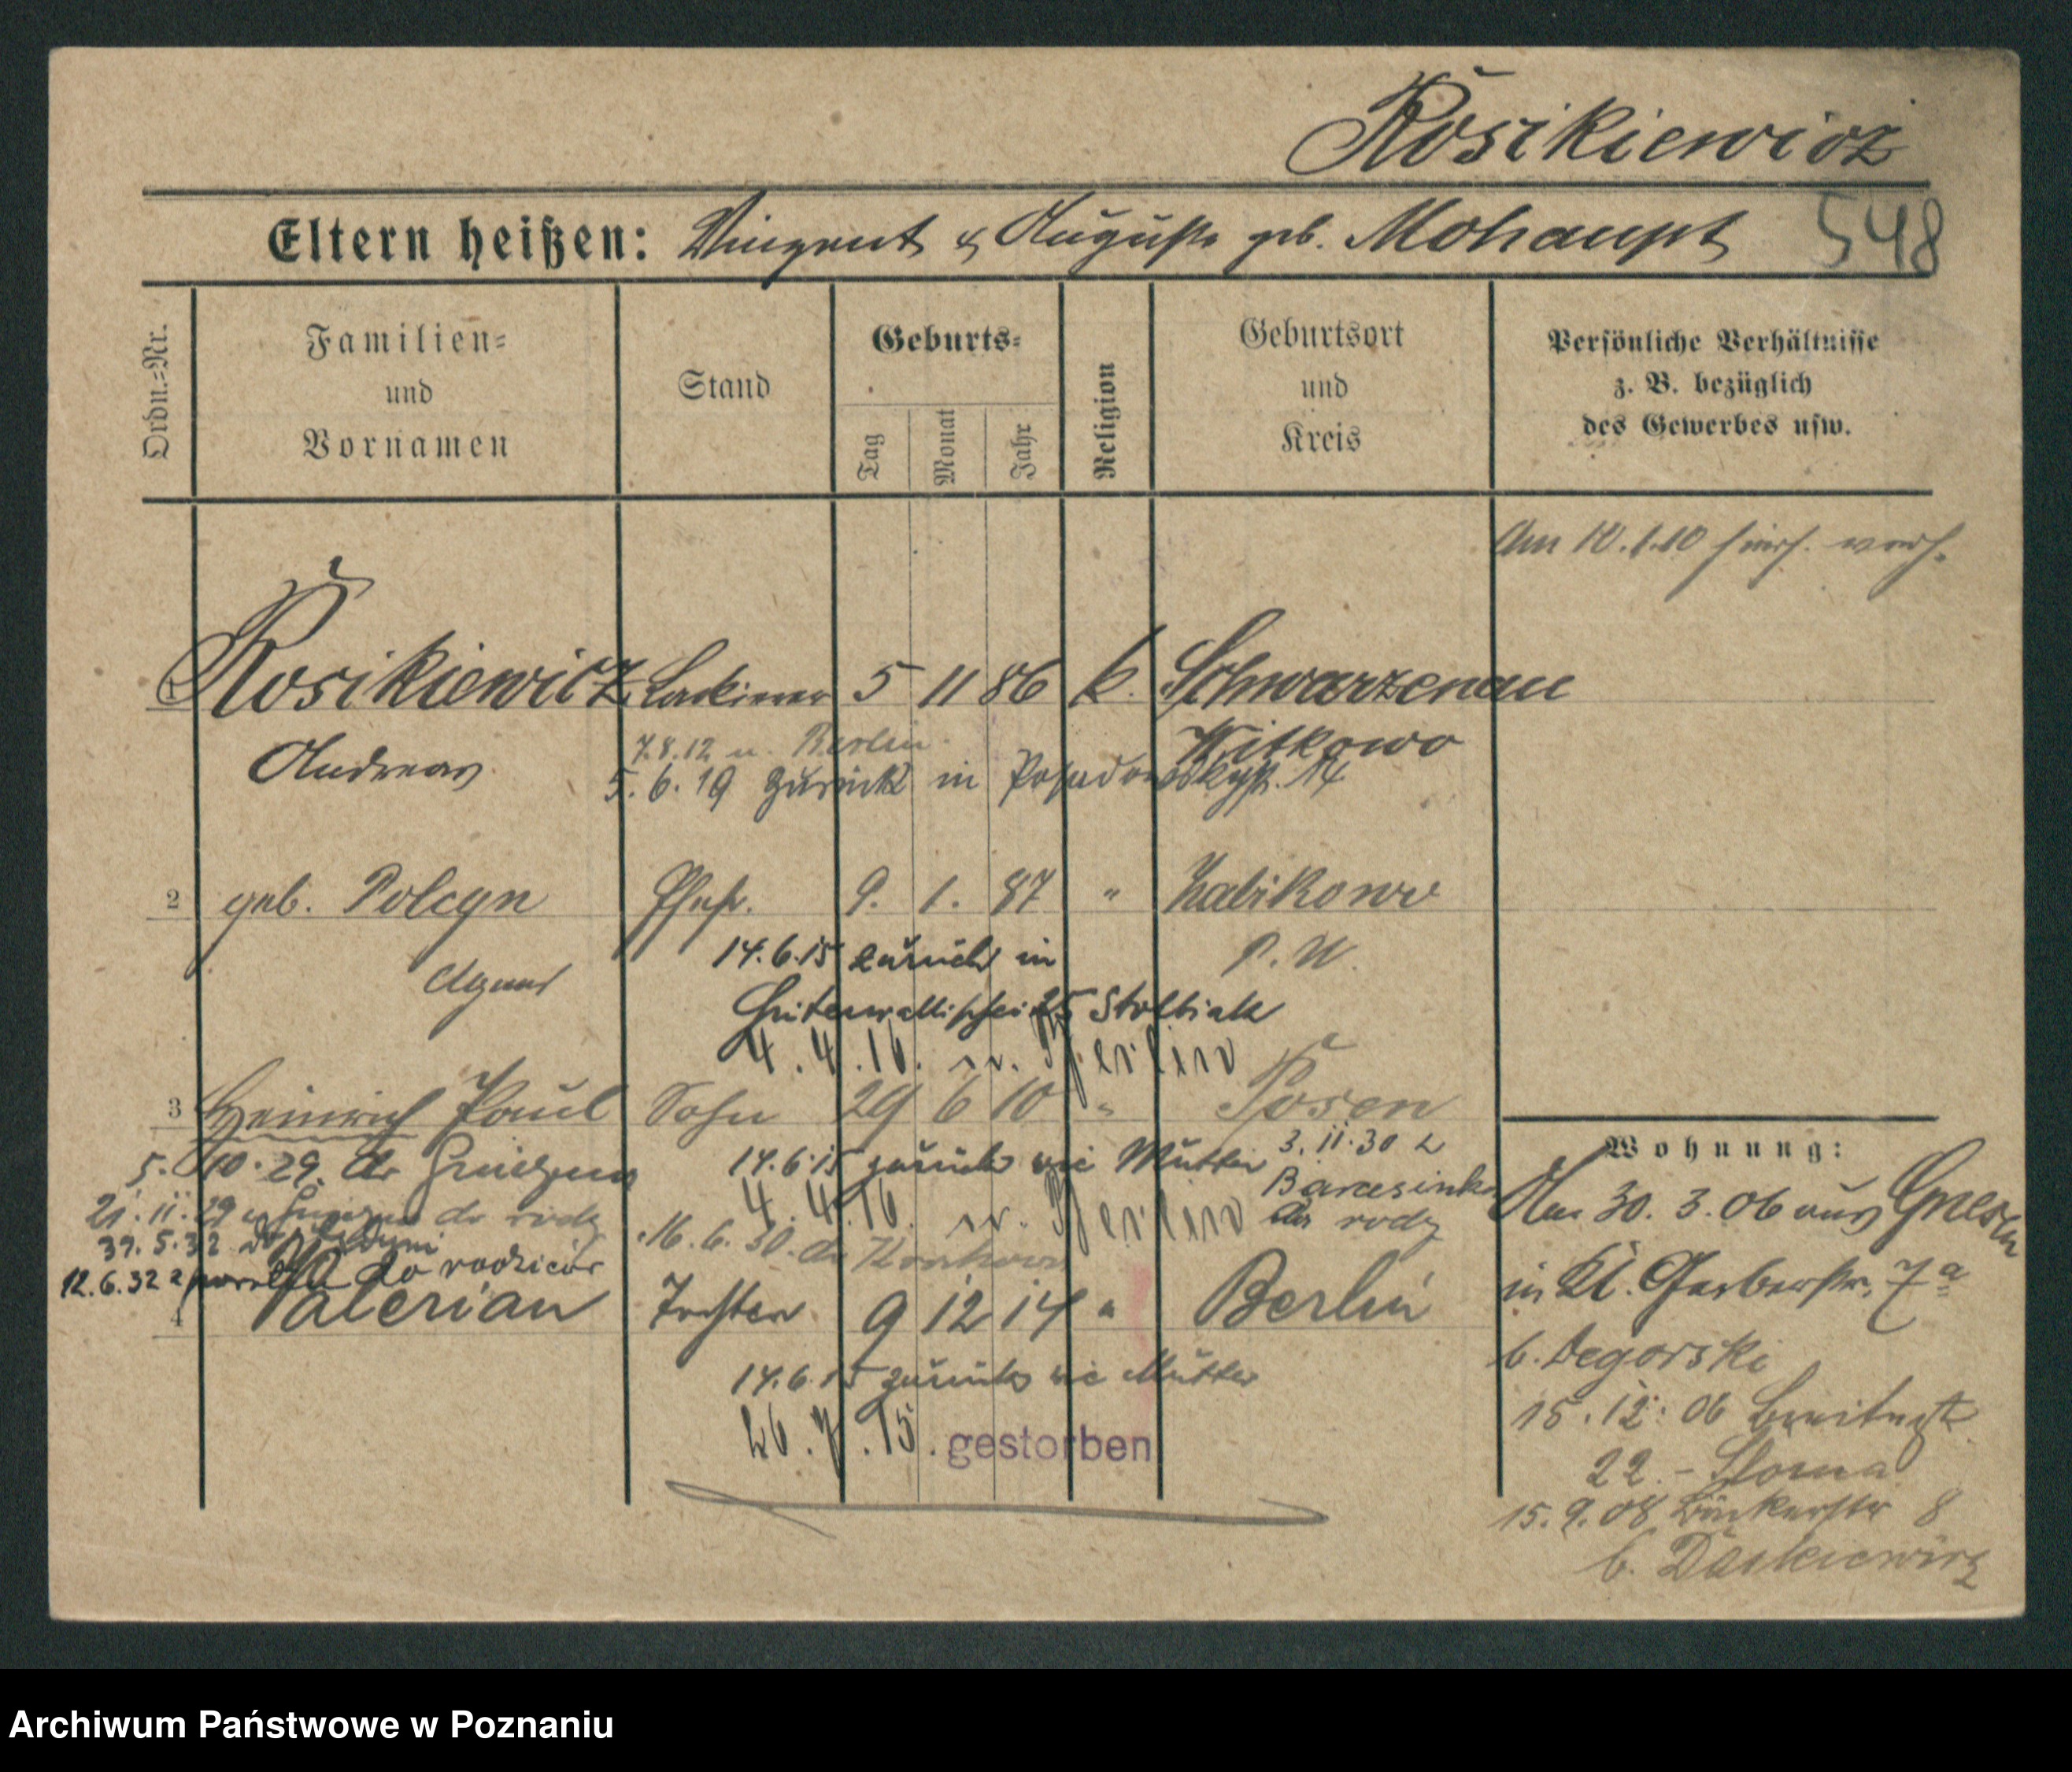 Rosikiewicz
Eltern heißen: Vinzent & Auguste geb. Mohaupt
548
Ordn.-Nr.
Familien-
und
Vornamen
Stand
Geburts-
Tag
Monat
Jahr
Religion
Geburtsort
und
Kreis
Persönliche Verhältnisse
z. B. bezüglich
des Gewerbes usw.
Am 10.1.10 verh.
1 Rosikiewicz Lackierer 5 11 86 k. Schwarzenau
Andreas
Witkowo
7.8.12 n. Berlin
5.6.19 zurück in Posadowskystr. 14
2 geb. Polcyn Ehefr. 9. 1. 87 " Zabikowo
Agnes
P. W.
14.6.15 zurück in
Hinterwallischei 25 Stolbiak
4.4.16. n. Berlin
3 Heinrich Paul Sohn 29 6 10 " Posen
5.10.29. do
14.6.15 zurück wie Mutter
3.11.30 z
Barcesinka
do rodz
21.11.29 do rodz
4.4.16. n. Berlin
16.6.30. do
31.5.32 do
12.6.32 z do rodziców
4 Valerian 9 12 14 " Berlin
14.6.15 zurück wie Mutter
26.7.15. gestorben
Wohnung:
Am 30.3.06 aus Gnesen
in Kl. Gerberstr. 7a
b. Degorski
15.12.06 Breitestr.
22. - Sloma
15.9.08 Bäckerstr 8
b. Daszkiewicz
Archiwum Państwowe w Poznaniu